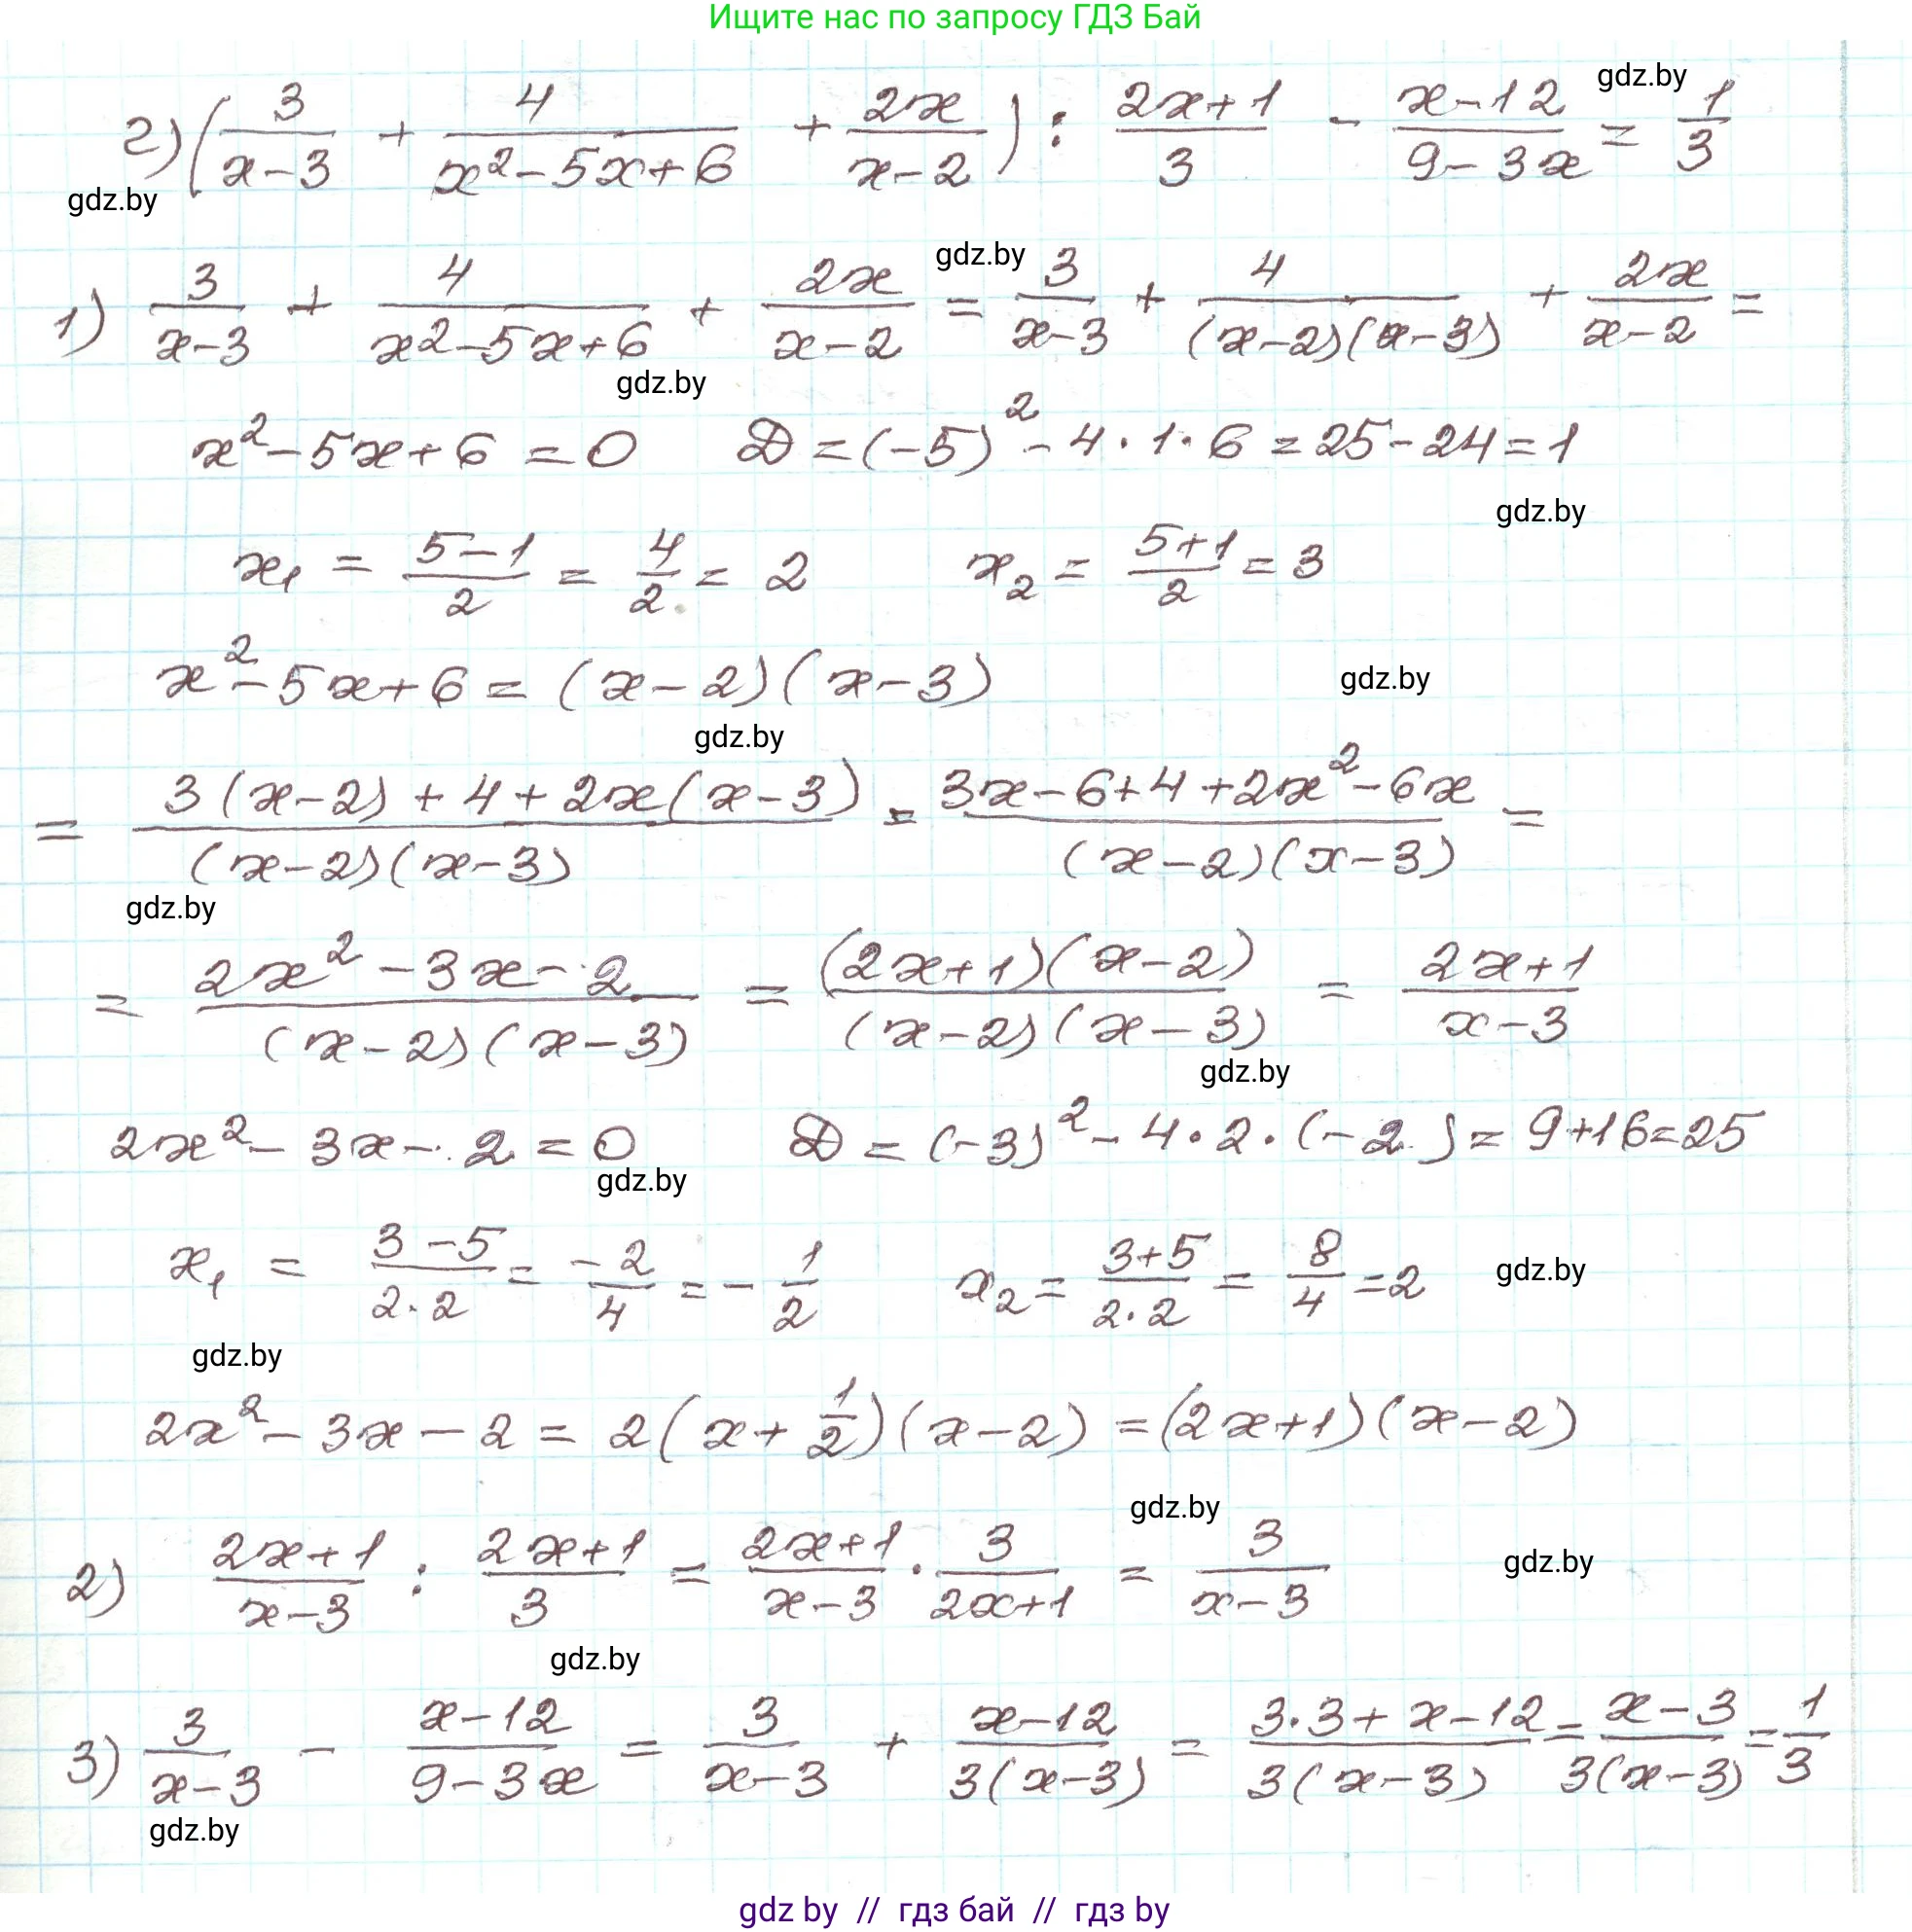 Ищите нас по запросу ГДЗ Бай
gdz.by
г) (3/(x-3) + 4/(x²-5x+6) + 2x/(x-2)) : (2x+1)/3 - (x-12)/(9-3x) = 1/3
gdz.by
gdz.by
1) 3/(x-3) + 4/(x²-5x+6) + 2x/(x-2) = 3/(x-3) + 4/((x-2)(x-3)) + 2x/(x-2) =
gdz.by
x²-5x+6=0 D=(-5)²-4·1·6=25-24=1
gdz.by
x₁ = (5-1)/2 = 4/2 = 2 x₂ = (5+1)/2 = 3
x²-5x+6=(x-2)(x-3)
gdz.by
gdz.by
= (3(x-2)+4+2x(x-3))/((x-2)(x-3)) = (3x-6+4+2x²-6x)/((x-2)(x-3)) =
gdz.by
= (2x²-3x-2)/((x-2)(x-3)) = ((2x+1)(x-2))/((x-2)(x-3)) = (2x+1)/(x-3)
gdz.by
2x²-3x-2=0 D=(-3)²-4·2·(-2)=9+16=25
gdz.by
x₁ = (3-5)/(2·2) = -2/4 = -1/2 x₂ = (3+5)/(2·2) = 8/4 = 2
gdz.by
gdz.by
2x²-3x-2=2(x+1/2)(x-2)=(2x+1)(x-2)
gdz.by
2) (2x+1)/(x-3) : (2x+1)/3 = (2x+1)/(x-3) · 3/(2x+1) = 3/(x-3)
gdz.by
gdz.by
3) 3/(x-3) - (x-12)/(9-3x) = 3/(x-3) + (x-12)/(3(x-3)) = (3·3+x-12)/(3(x-3)) = (x-3)/(3(x-3)) = 1/3
gdz.by
gdz by // гдз бай // гдз by